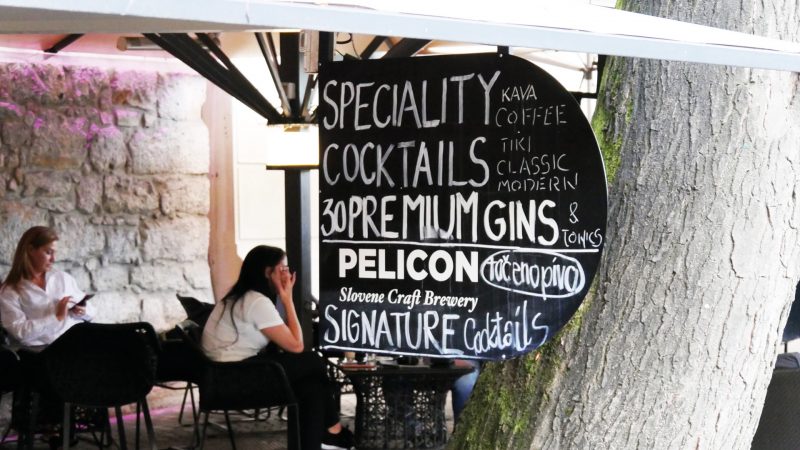 SPECIALITY KAVA
COFFEE
COCKTAILS TIKI
CLASSIC
MODERN
30 PREMIUM GINS &
TONICS
PELICON točeno pivo
Slovene Craft Brewery
SIGNATURE Cocktails